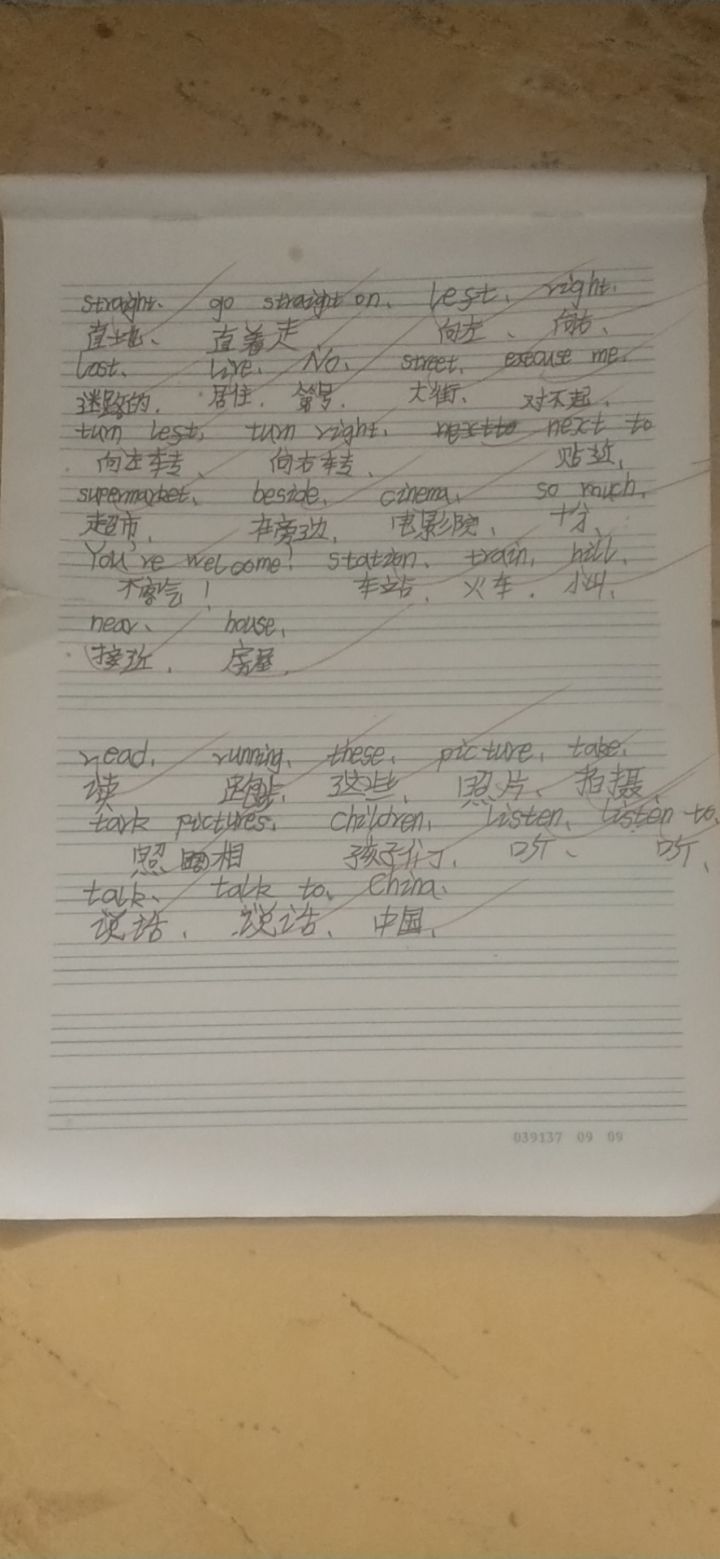 straight. go straight on. lest. right.
直地、 直着走 向左、 向右、
lost. live. No. street. excuse me.
迷路的. 居住. 第号. 大街. 对不起.
turn lest. turn right. next to
向左转、 向右转、 贴近,
supermarket. beside. cinema. so much.
超市, 在旁边. 电影院、 十分、
You're welcome! station. train. hill.
不客气! 车站. 火车. 小山.
near. house.
接近. 房屋.
read. running. these. picture. take.
读 跑步. 这些. 照片、 拍摄.
tark pictures. children. listen. listen to.
照相 孩子们. 听、 听、
talk. talk to. China.
说话. 说话、 中国.
039137 09 09